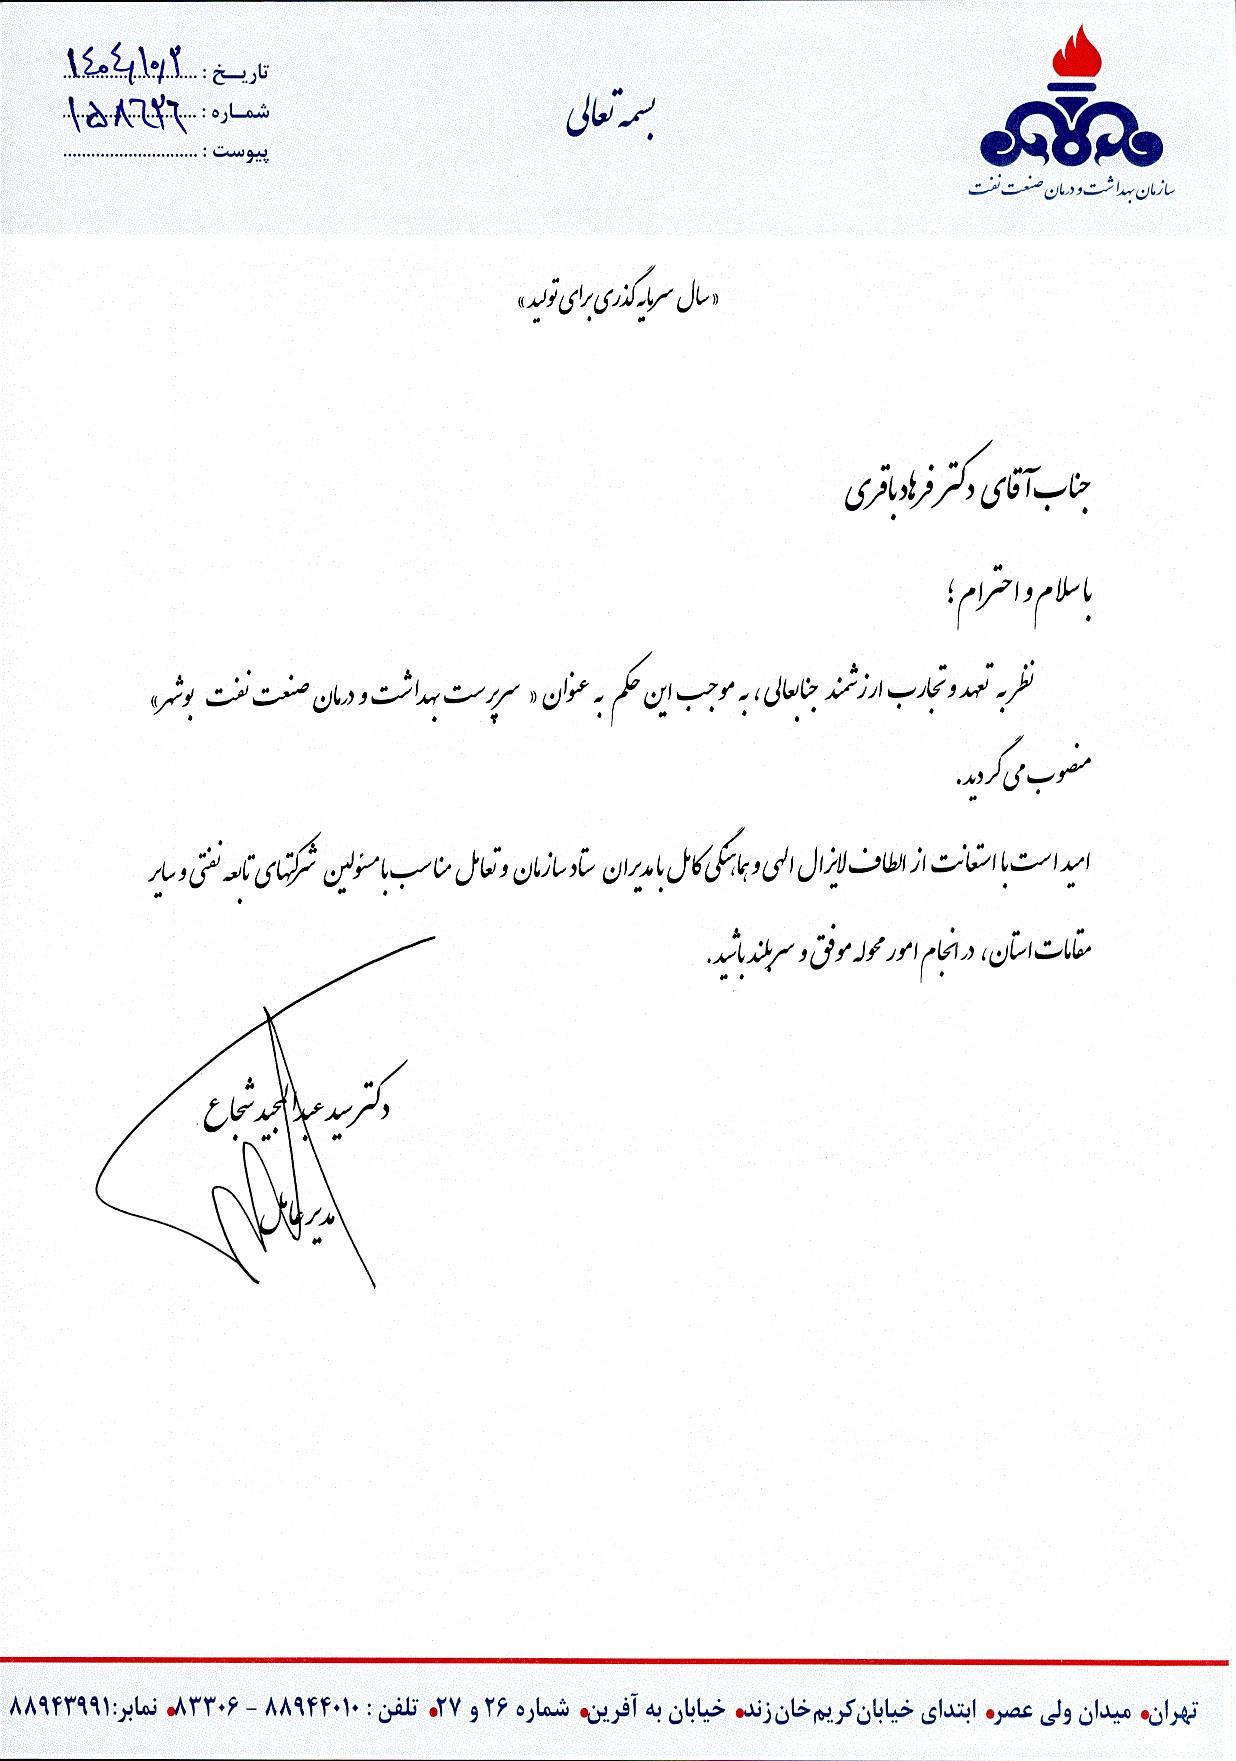 بسمه تعالی
تاریخ : ۱۴۰۴/۱۰/۳
شماره : ۱۵۸۶۲۶
پیوست :
سازمان بهداشت و درمان صنعت نفت
«سال سرمایه گذری برای تولید»
جناب آقای دکتر فرهاد باقری
با سلام و احترام ؛
نظر به تعهد و تجارب ارزشمند جنابعالی ، به موجب این حکم به عنوان « سرپرست بهداشت و درمان صنعت نفت بوشهر»
منصوب می گردید.
امید است با استعانت از الطاف لایزال الهی و هماهنگی کامل با مدیران ستاد سازمان و تعامل مناسب با مسئولین شرکتهای تابعه نفتی و سایر
مقامات استان، در انجام امور محوله موفق و سربلند باشید.
دکتر سید عبدالمجید شجاع
مدیر عامل
تهران• میدان ولی عصر• ابتدای خیابان کریم خان زند• خیابان به آفرین• شماره ۲۶ و ۲۷• تلفن : ۸۸۹۴۴۰۱۰ - ۸۳۳۰۶• نمابر:۸۸۹۴۳۹۹۱